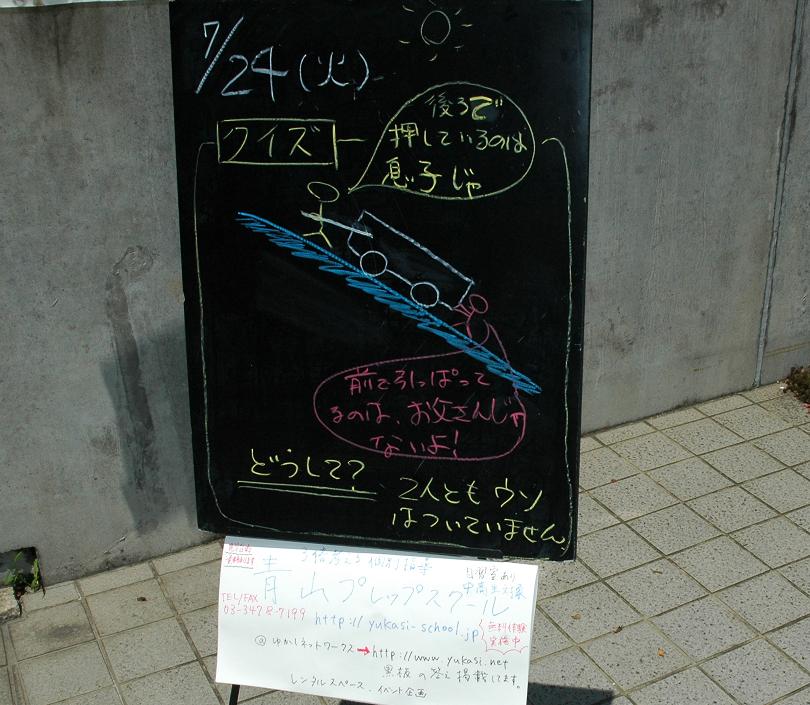 7/24(火)
クイズ
後ろで
押しているのは
息子じゃ
前で引っぱって
るのは、お父さんじゃ
ないよ!
どうして?
2人ともウソ
はついていません
自習室あり
青山プレップスクール
中高生対象
TEL/FAX
03-3478-7199
http://yukasi-school.jp
無料体験
実施中
@ ゆかしネットワークス→http://www.yukasi.net
黒板の答え掲載してます。
レンタルスペース、イベント企画